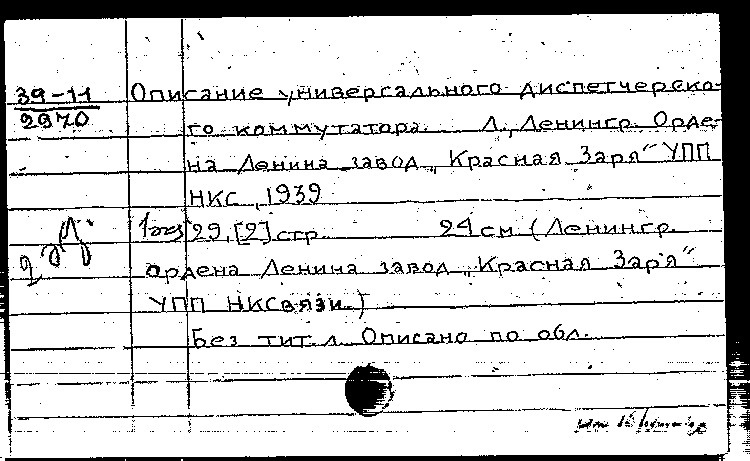 39-11
2970
Описание универсального диспетчерско-
го коммутатора. Л., Ленингр. Орде-
на Ленина завод „Красная Заря“ УПП
НКС, 1939
29, [2] стр. 24 см (Ленингр.
ордена Ленина завод „Красная Заря“
УПП НКСвязи)
Без тит. л. Описано по обл.